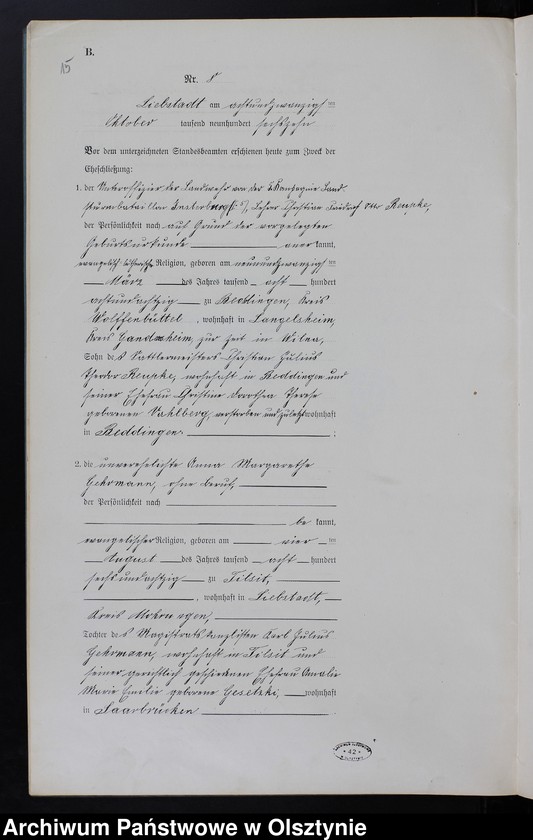 15
B.
Nr. 8
Liebstadt am achtundzwanzigsten
Oktober tausend neunhundert sechszehn
Vor dem unterzeichneten Standesbeamten erschienen heute zum Zweck der
Eheschließung:
1. der Unteroffizier der Landwehr von der Kompagnie Land
sturmbataillon Insterburg Lehrer Christian Otto Reupke,
der Persönlichkeit nach auf Grund der vorgelegten
Geburtsurkunde anerkannt,
evangelisch lutherische Religion, geboren am neunundzwanzigsten
März des Jahres tausend acht hundert
achtundachtzig zu Beddingen, Kreis
Wolffenbüttel, wohnhaft in Langelsheim,
Kreis Gandersheim, zur Zeit in Wilna,
Sohn des Sattlermeisters Christian Julius
Theodor Reupke, wohnhaft in Beddingen und
seiner Ehefrau Christine Dorothea Therese
geborenen Vahlberg, verstorben und zuletzt wohnhaft
in Beddingen.
2. die unverehelichte Anna Margarethe
Gehrmann, ohne Beruf,
der Persönlichkeit nach
bekannt,
evangelischer Religion, geboren am vierten
August des Jahres tausend acht hundert
sechsundachtzig zu Tilsit,
, wohnhaft in Liebstadt,
Kreis Mohrungen,
Tochter des Magistratskanzlisten Karl Julius
Gehrmann, wohnhaft in Tilsit und
seiner gerichtlich geschiedenen Ehefrau Amalie
Marie Emilie geborene Gesetzki, wohnhaft
in Saarbrücken
42
Archiwum Państwowe w Olsztynie